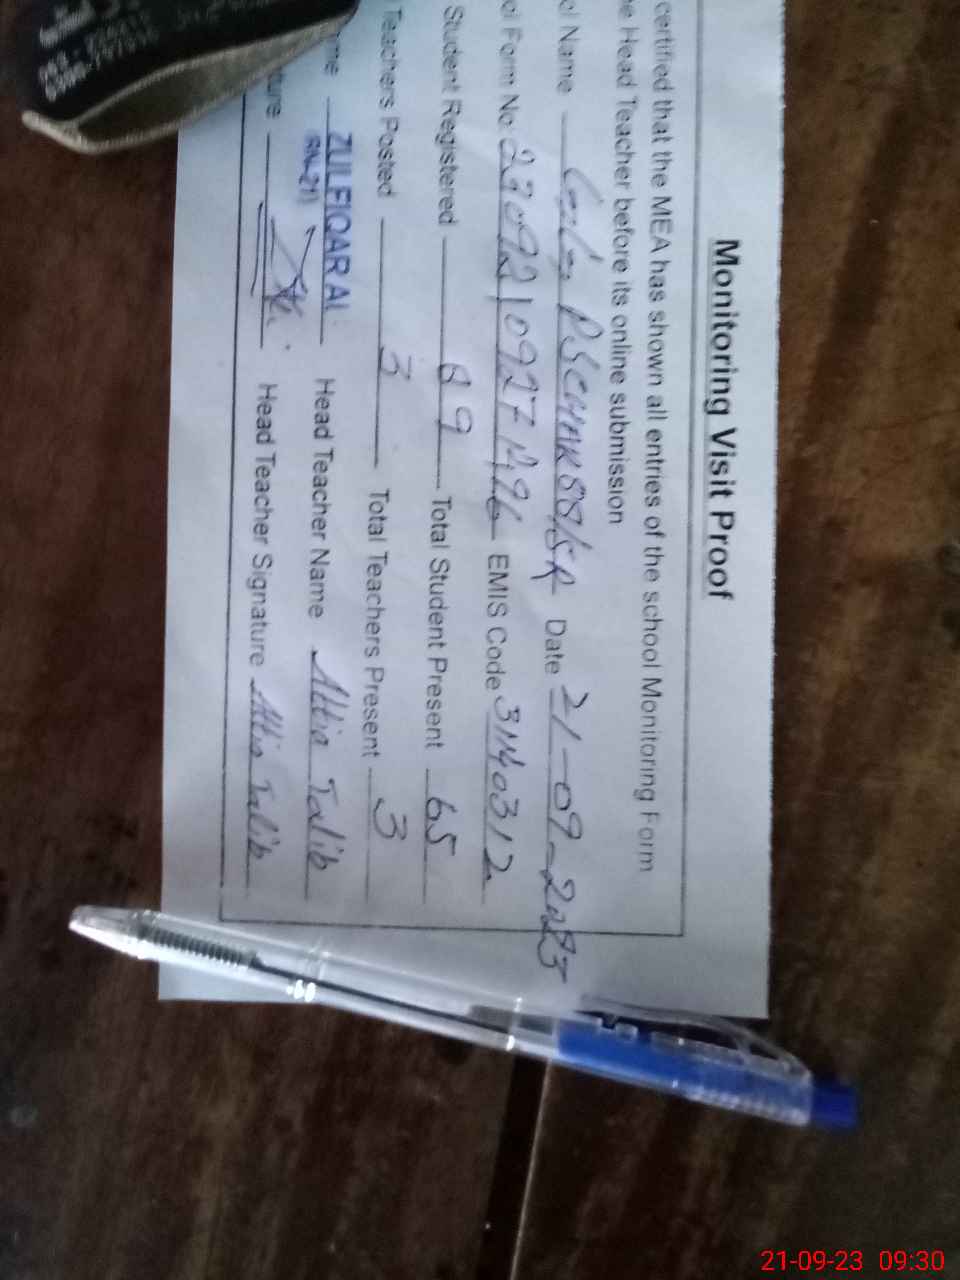 Monitoring Visit Proof
certified that the MEA has shown all entries of the school Monitoring Form
e Head Teacher before its online submission
ol Name PS CHAK 88/5R Date 21-09-2023
ol Form No. EMIS Code 31140312
Student Registered 89 Total Student Present 65
Teachers Posted 3 Total Teachers Present 3
me ZULFIQAR AL Head Teacher Name Attia Talib
(RN-21)
ture Head Teacher Signature Attia Talib
21-09-23 09:30